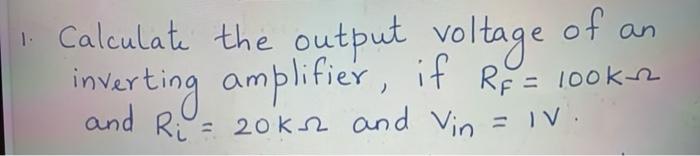 1. Calculate the output voltage of an
inverting amplifier, if RF = 100kΩ
and Ri = 20kΩ and Vin = 1V.